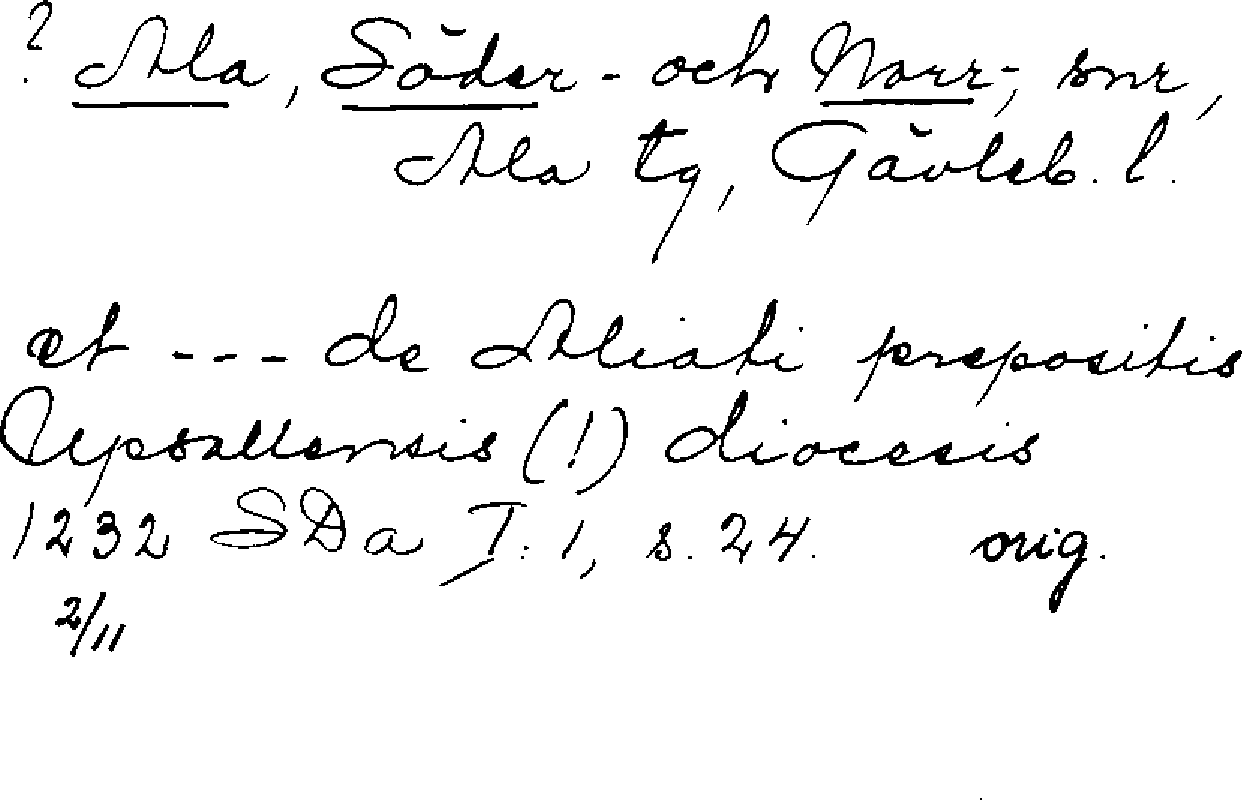 ? Ala, Söder- och Norr-, snr,
Ala tg, Gävleb. l.
et --- de Aliati prepositis
Upsallensis (!) diocesis
1232 SDa I:1, s. 24. orig.
2/11